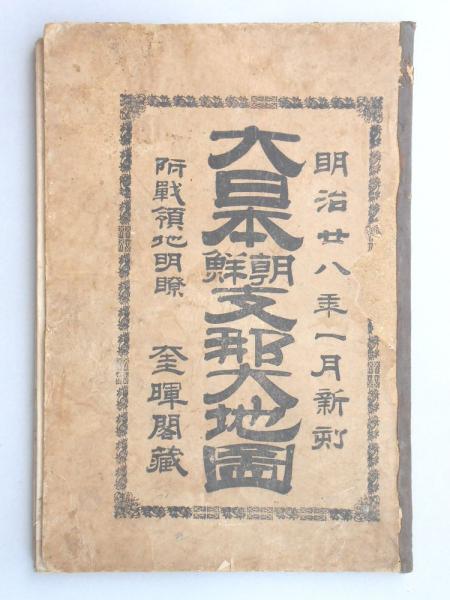 明治廿八年一月新刻
大日本朝鮮支那大地圖
附戰領地明瞭
奎暉閣藏